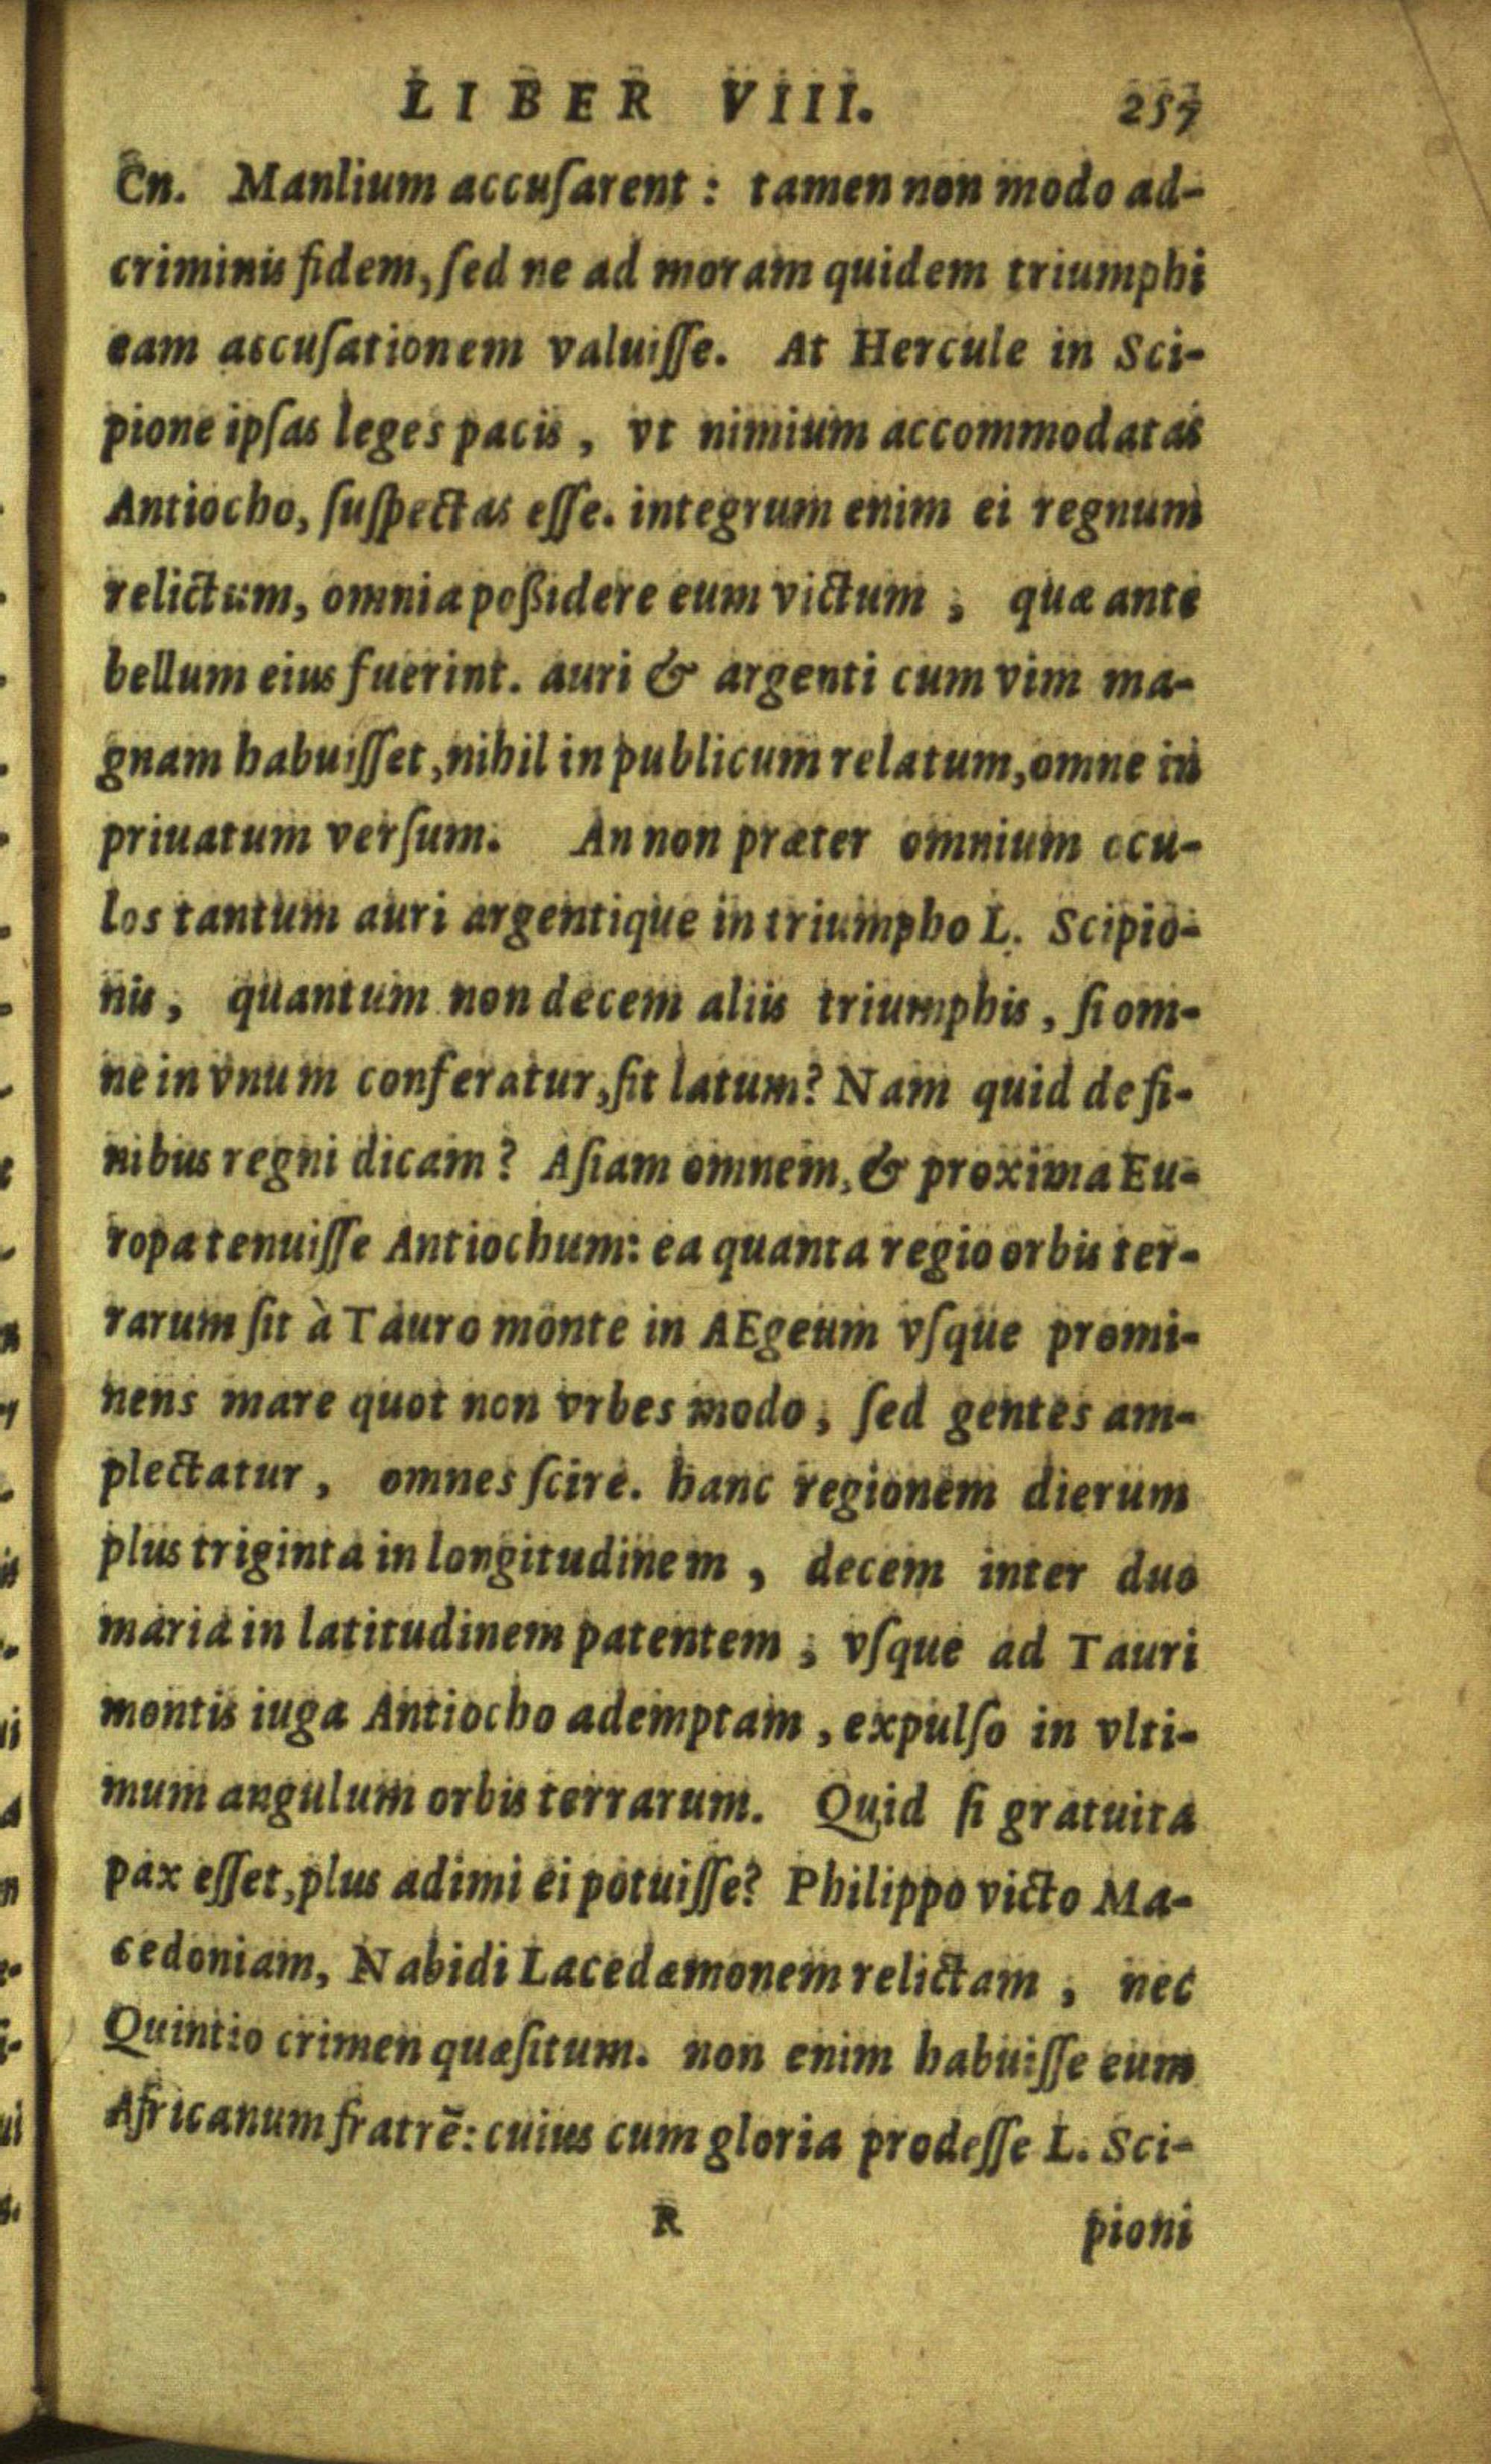 LIBER VIII. 257
Cn. Manlium accuſarent : tamen non modo ad-
criminis fidem, ſed ne ad moram quidem triumphi
eam accuſationem valuiſſe. At Hercule in Sci-
pione ipſas leges pacis, vt nimium accommodatas
Antiocho, ſuſpectas eſſe. integrum enim ei regnum
relictum, omnia poßidere eum victum, quæ ante
bellum eius fuerint. auri & argenti cum vim ma-
gnam habuiſſet, nihil in publicum relatum, omne in
priuatum verſum. An non præter omnium ocu-
los tantum auri argentique in triumpho L. Scipio-
nis, quantum non decem aliis triumphis, ſi om-
ne in vnum conferatur, ſit latum? Nam quid de fi-
nibus regni dicam? Aſiam omnem, & proxima Eu-
ropa tenuiſſe Antiochum: ea quanta regio orbis ter-
rarum ſit à Tauro monte in AEgeum vſque promi-
nens mare quot non vrbes modo, ſed gentes am-
plectatur, omnes ſcire. hanc regionem dierum
plus triginta in longitudinem, decem inter duo
maria in latitudinem patentem, vſque ad Tauri
montis iuga Antiocho ademptam, expulſo in vlti-
mum angulum orbis terrarum. Quid ſi gratuita
pax eſſet, plus adimi ei potuiſſe? Philippo victo Ma-
cedoniam, Nabidi Lacedæmonem relictam, nec
Quintio crimen quæſitum. non enim habuiſſe eum
Africanum fratrē: cuius cum gloria prodeſſe L. Sci-
R pioni